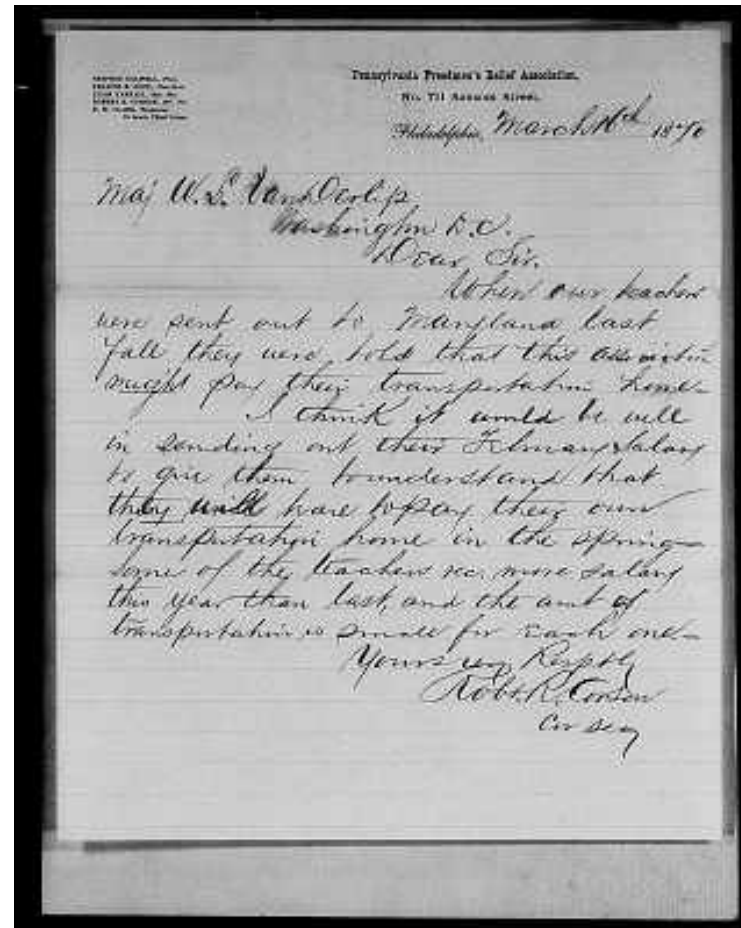 Pennsylvania Freedmen's Relief Association,
No. 711 Sansom Street,
Philadelphia, March 16th 1870
Maj W. L. VanDerlip
Washington D.C.
Dear Sir.
When our teachers
were sent out to Maryland last
fall they were told that this association
might pay their transportation home—
I think it would be well
in sending out their February Salary
to give them to understand that
they will have to pay their own
transportation home in the spring—
some of the teachers rec. more salary
this year than last, and the amt of
transportation is small for each one—
Yours very Respty
Robt. R. Corson
Cor Secy